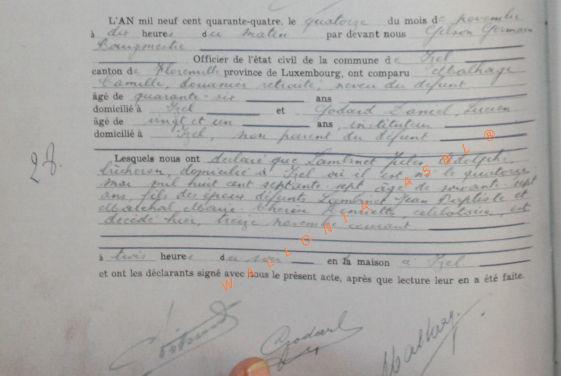 L'AN mil neuf cent quarante-quatre, le quatorze du mois de novembre
à dix heures du matin par devant nous Gilson Germain
Bourgmestre
Officier de l'état civil de la commune de Izel
canton de Florenville province de Luxembourg, ont comparu Malhage
Camille, douanier retraité, neveu du défunt
âgé de quarante-six ans
domicilié à Izel et Godard Daniel, Lucien
âgé de vingt et un ans, instituteur
domicilié à Izel, non parent du défunt
28.
Lesquels nous ont déclaré que Lambinet Jules Adolphe
bûcheron, domicilié à Izel où il est né le quatorze
mai mil huit cent septante-sept, âgé de soixante-sept
ans, fils des époux défunts Lambinet Jean Baptiste et
Maréchal Marie, Henriette, célibataire, est
décédé hier, treize novembre courant
à trois heures du soir en la maison à Izel
et ont les déclarants signé avec nous le présent acte, après que lecture leur en a été faite.
WALLONIA ASBL ©
Godard